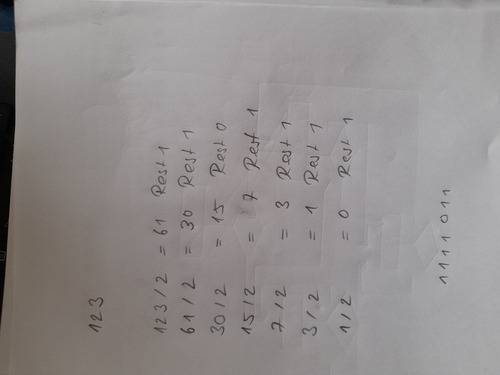 123
123/2 = 61 Rest 1
61/2 = 30 Rest 1
30/2 = 15 Rest 0
15/2 = 7 Rest 1
7/2 = 3 Rest 1
3/2 = 1 Rest 1
1/2 = 0 Rest 1
1111011